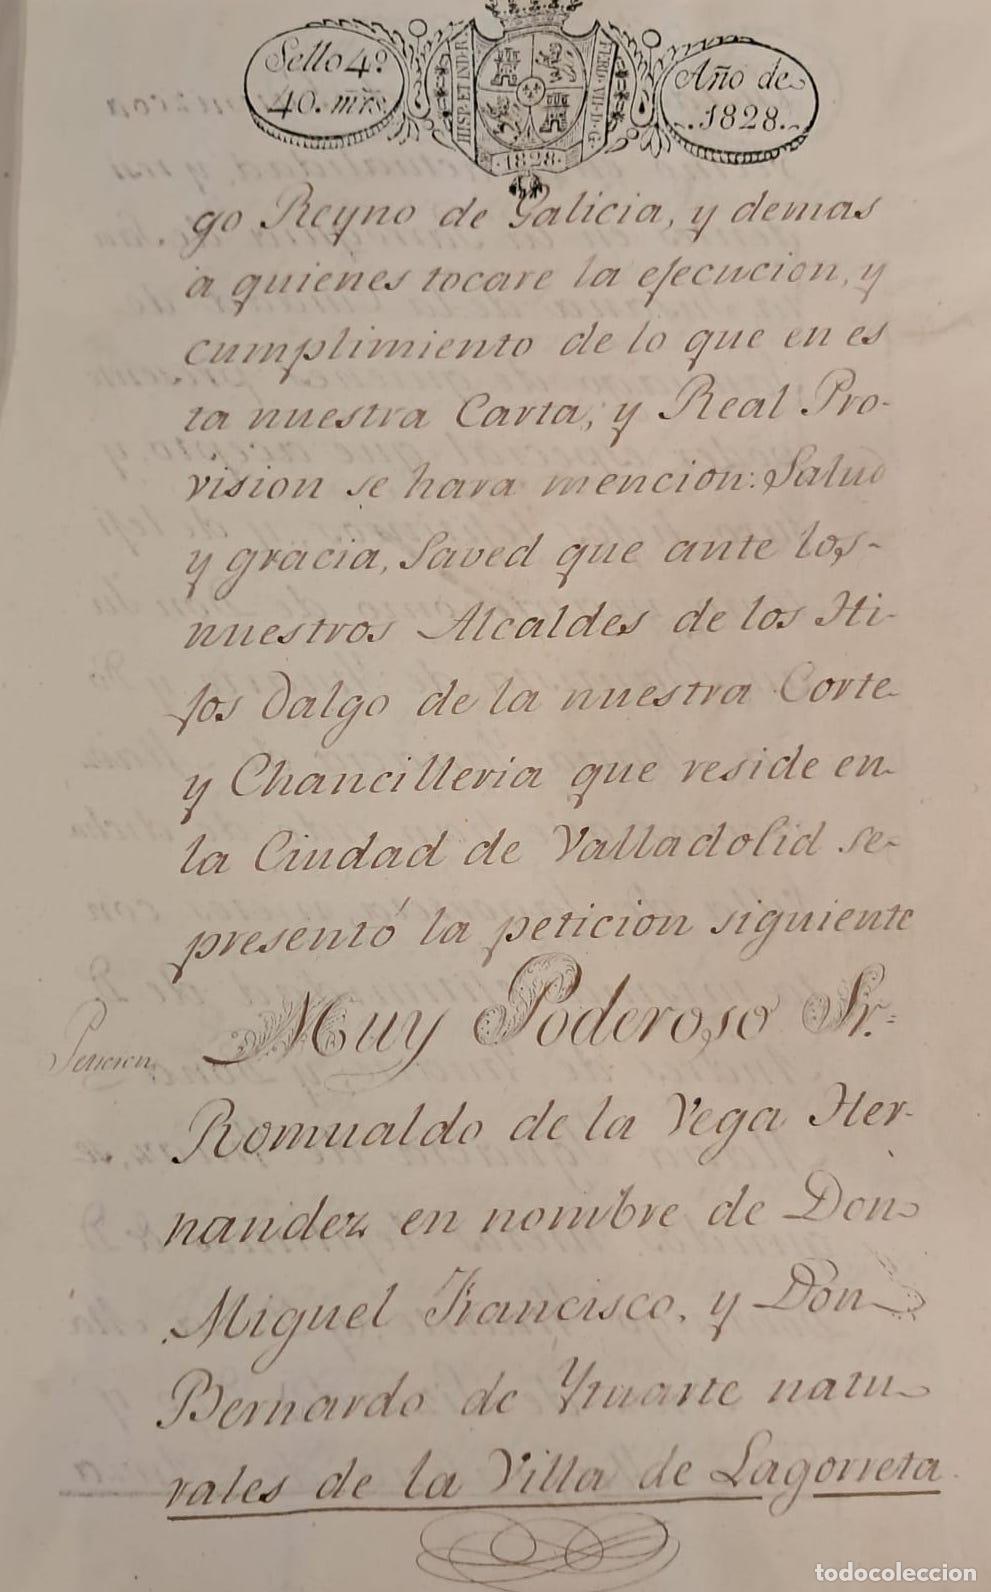 Sello 4º
40. mrs.
HISP. ET IND. R.
FERD. VII. D. G.
1828
Año de
1828.
go Reyno de Galicia, y demas
a quienes tocare la ejecucion, y
cumplimiento de lo que en es
ta nuestra Carta, y Real Pro-
vision se hara mencion: Salud
y gracia, Saved que ante los-
nuestros Alcaldes de los Hi-
jos dalgo de la nuestra Corte
y Chancilleria que reside en
la Ciudad de Valladolid se-
presentó la peticion siguiente
Peticion
Muy Poderoso Sr.=
Romualdo de la Vega Her-
nandez en nombre de Don
Miguel Francisco, y Don
Bernardo de Yruarte natu-
rales de la Villa de Lagorreta
todocoleccion